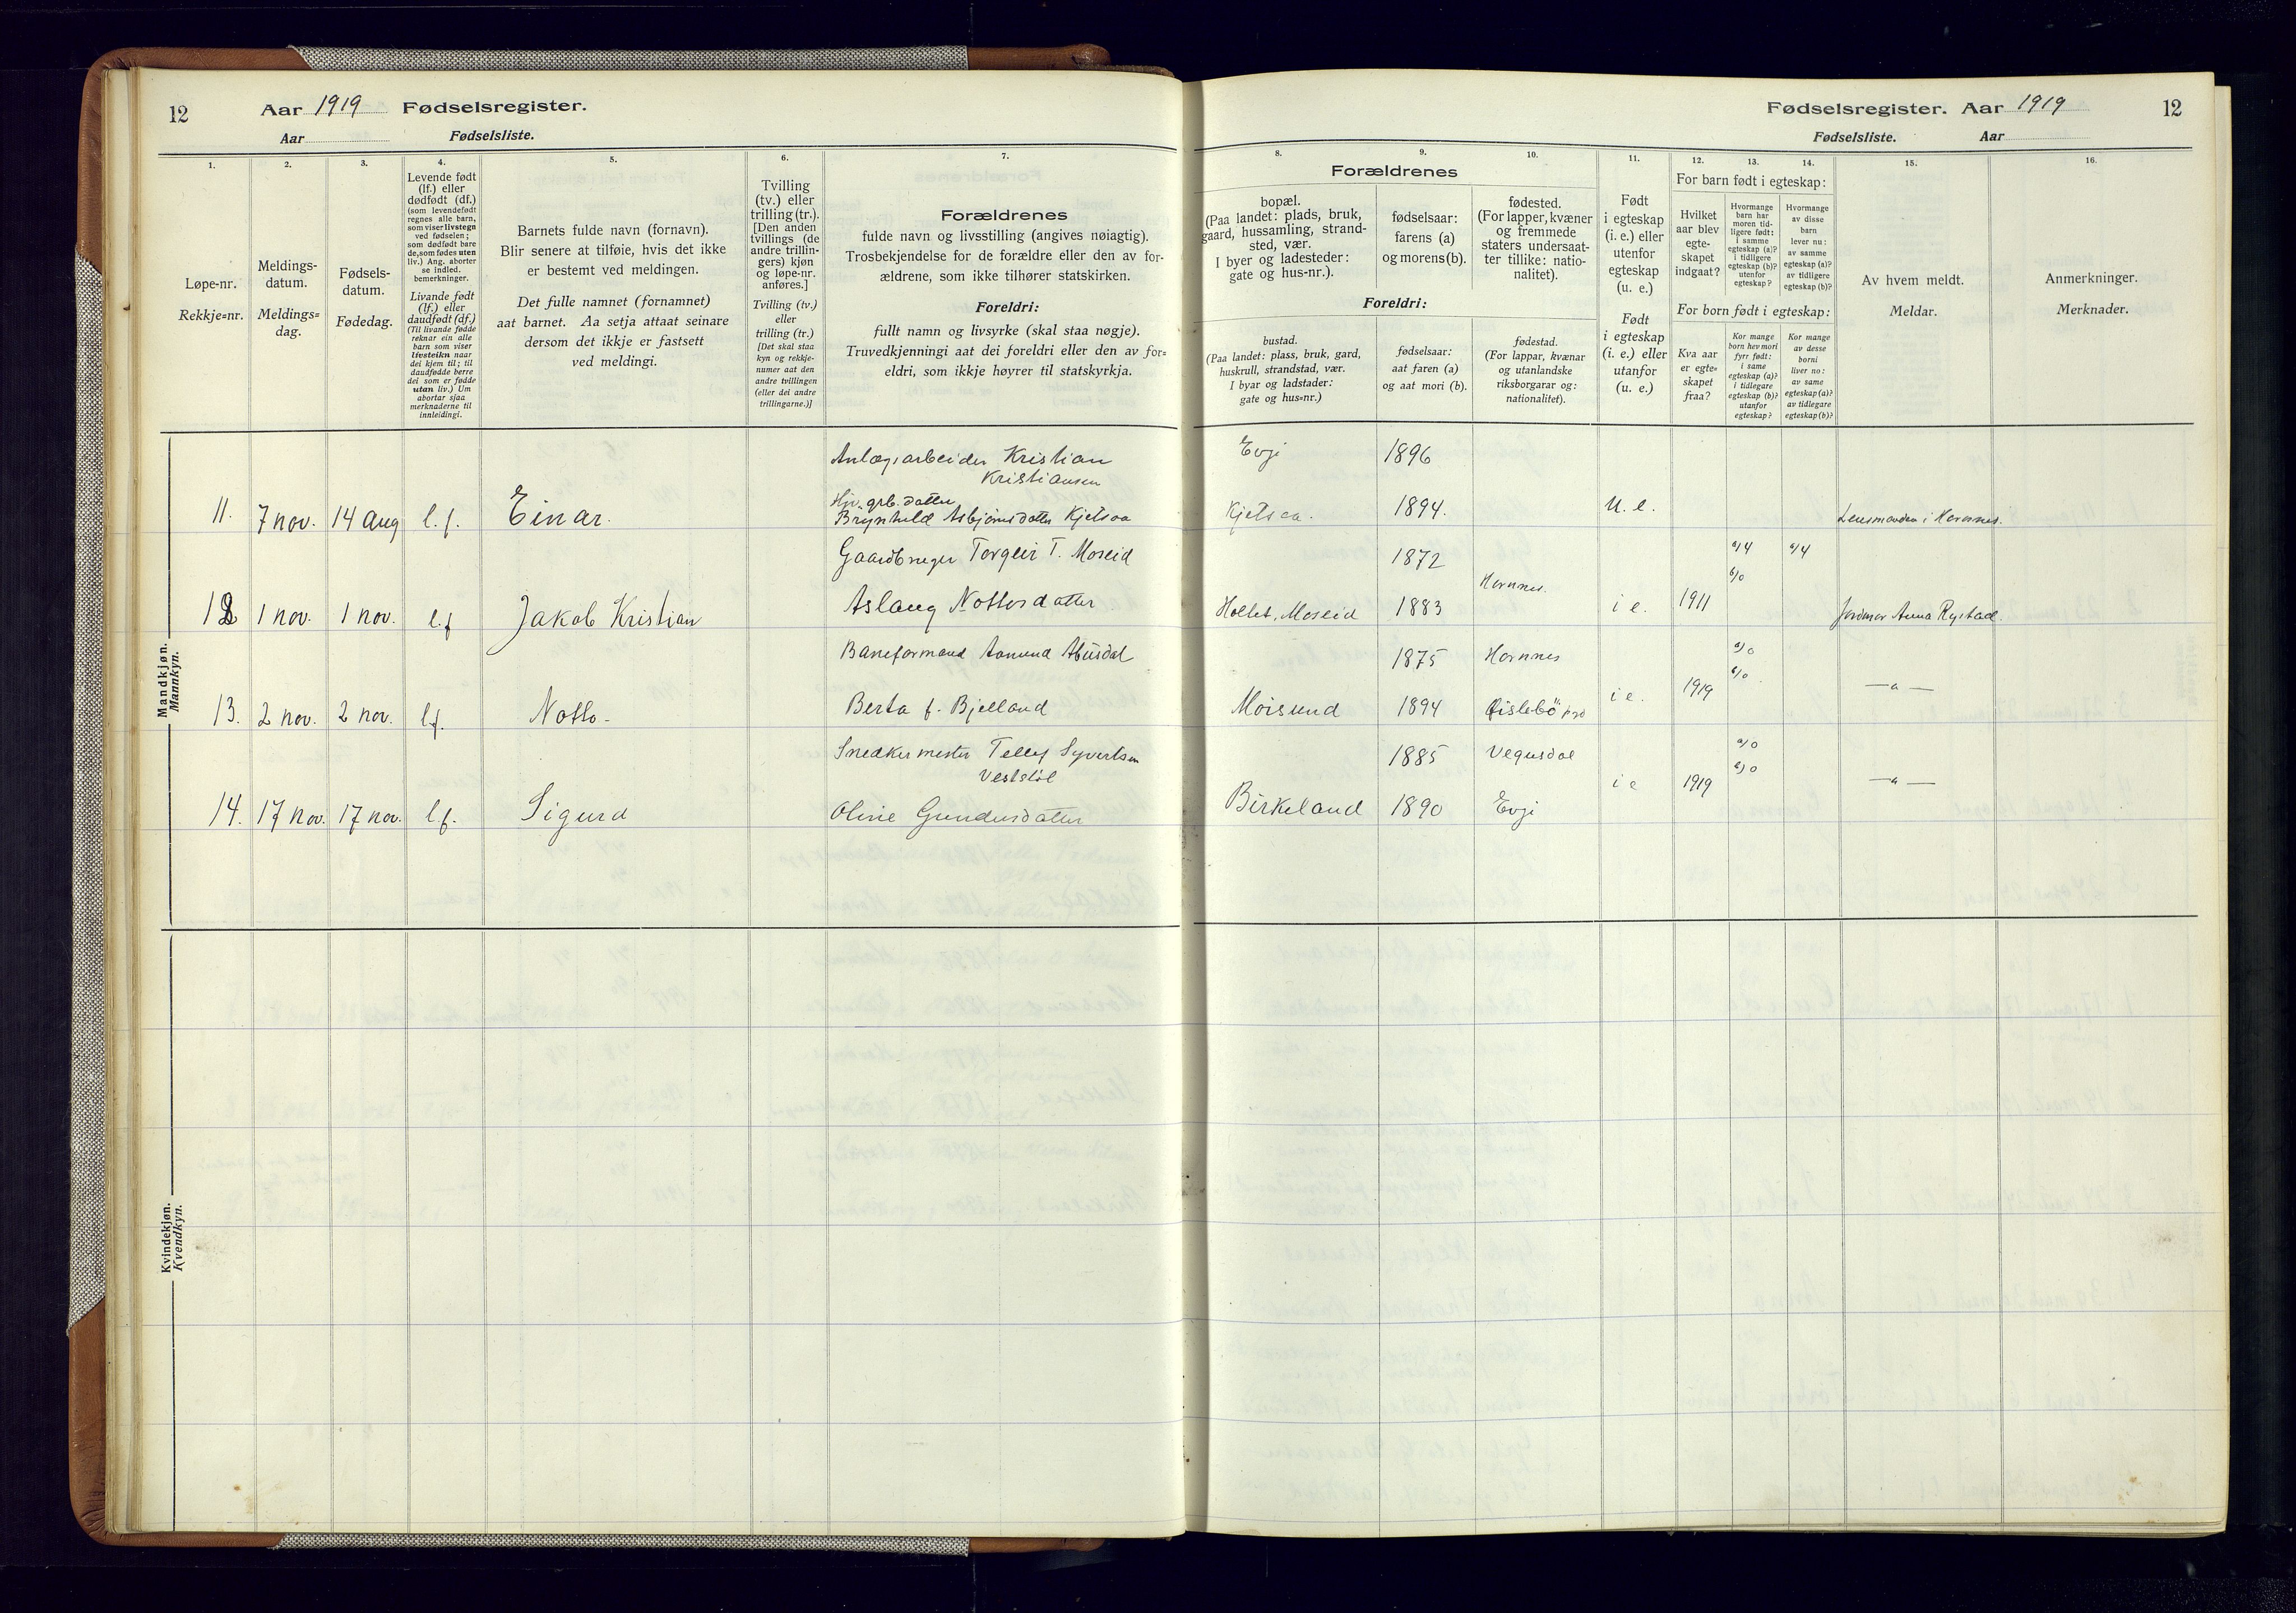 12 Aar 1919 Fødselsregister.
Aar Fødselsliste.
1. 2. 3. 4. 5. 6. 7.
Løpe-nr.
Rekkje=nr.
Meldings-
datum.
Meldings=
dag.
Fødsels-
datum.
Fødedag.
Levende født
(lf.) eller
dødfødt (df.)
(som levendefødt
regnes alle barn,
som viser livstegn
ved fødselen;
som dødfødt bare
de, som fødes uten
liv.) Ang. aborter
se indled.
bemerkninger.
Livande født
(lf.) eller
daudfødt (df.)
(Til livande fødde
reknar ein alle
barn som viser
livsteikn naar
dei kjem til; til
daudfødde berre
dei som er fødde
utan liv.) Um
abortar sjaa
merknaderne til
innleidingi.
Barnets fulde navn (fornavn).
Blir senere at tilføie, hvis det ikke
er bestemt ved meldingen.
Det fulle namnet (fornamnet)
aat barnet. Aa setja attaat seinare
dersom det ikkje er fastsett
ved meldingi.
Tvilling
(tv.) eller
trilling (tr.).
[Den anden
tvillings (de
andre trillin-
gers) kjøn
og løpe-nr.
anføres.]
Tvilling (tv.)
eller
trilling (tr.)
[Det skal staa
kyn og rekkje-
numer aat den
andre tvillingen
(eller dei andre
trillingarne.)]
Forældrenes
fulde navn og livsstilling (angives nøiagtig).
Trosbekjendelse for de forældre eller den av for-
ældrene, som ikke tilhører statskirken.
Foreldri:
fullt namn og livsyrke (skal staa nøgje).
Truvedkjenningi aat dei foreldri eller den av for=
eldri, som ikkje høyrer til statskyrkja.
Mandkjøn.
Mannkyn.
Anlægsarbeider Kristian
Kristiansen
Hjv. grb. datter
11. 7 nov. 14 aug l.f. Einar. Brynhild Asbjørnsdatter Kjetsaa
Gaardbruger Torgeir T. Moseid
12 1 nov. 1 nov. l.f Jakob Kristian Aslaug Nottosdatter
Baneformand Aanund Abusdal
13. 2 nov. 2 nov. l.f. Notto- Berta f. Bjelland
Snedkermester Tellef Syvertsen
Veststøl
14. 17 nov. 17 nov. l.f. Sigurd Oline Gundersdatter
Kvindekjøn.
Kvendkyn.
Fødselsregister. Aar 1919 12
Fødselsliste. Aar
8. 9. 10. 11. 12. 13. 14. 15. 16.
Forældrenes
bopæl.
(Paa landet: plads, bruk,
gaard, hussamling, strand-
sted, vær.
I byer og ladesteder:
gate og hus-nr.).
fødselsaar:
farens (a)
og morens (b).
fødested.
(For lapper, kvæner
og fremmede
staters undersaat-
ter tillike: natio-
nalitet).
Foreldri:
bustad.
(Paa landet: plass, bruk, gard,
huskrull, strandstad, vær.
I byar og ladstader:
gate og hus=nr.)
fødselsaar:
aat faren (a)
og aat mori (b).
fødestad.
(For lappar, kvænar
og utanlandske
riksborgarar og:
nationalitet).
Født
i egteskap
(i. e.) eller
utenfor
egteskap
(u. e.)
Født
i egteskap
(i. e.) eller
utanfor
(u. e.)
For barn født i egteskap:
Hvilket
aar blev
egte-
skapet
indgaat?
Hvormange
barn har
moren tid-
ligere født:
i samme
egteskap (a)?
i tidligere
egteskap (b)?
utenfor
egteskap?
Hvormange
av disse
barn
lever nu:
av samme
egteskap (a)?
av tidligere
egteskap (b)?
For born født i egteskap:
Kva aar
er egte=
skapet
fraa?
Kor mange
born hev mori
fyrr født:
i same
egteskap (a)?
i tidlegare
egteskap (b)?
utanfor
egteskap?
Kor mange
av desse
borni
liver no:
av same
egteskap (a)?
av tidlegare
egteskap (b)?
Av hvem meldt.
Meldar.
Anmerkninger.
Merknader.
Evji 1896
Kjetsaa. 1894. U. e. Lensmanden i Hornnes.
1872 a/4 a/4
Hornnes. b/0
Moseid 1883 i e. 1911 Jordmor Anna Rystad.
1875 Hornnes a/0
b/0
Moisund 1894 Øislebö i e. 1919 — a —
1885 Vegusdal a/0
b/0
Birkeland 1890 Evji i e 1919 — a —